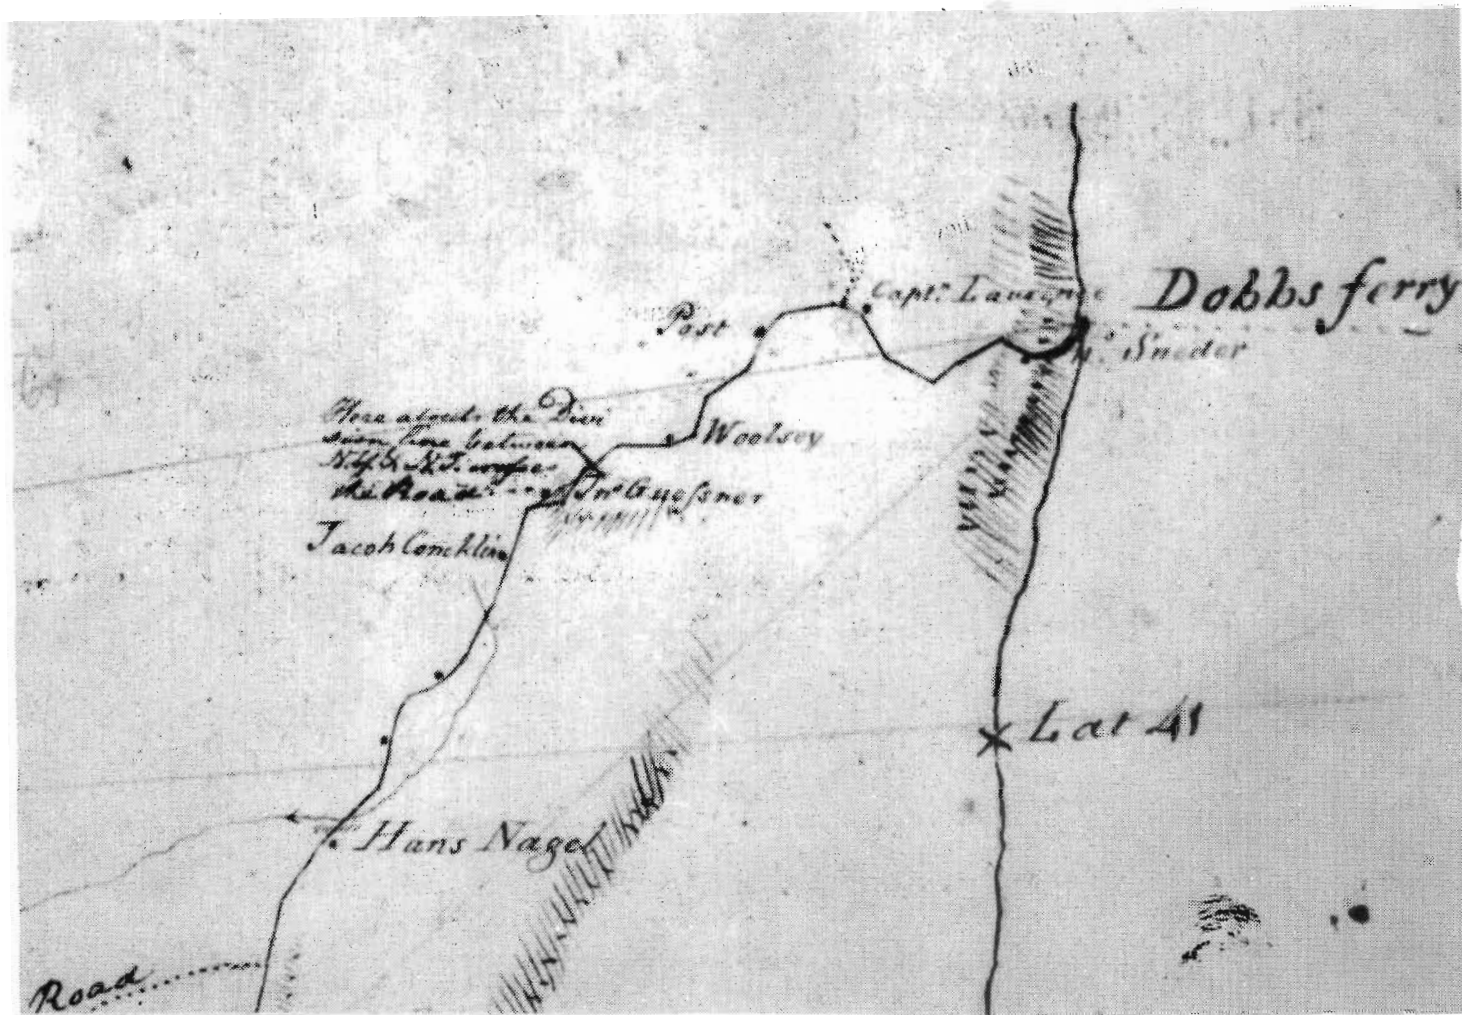 Dobbs ferry
Capt.ⁿ Laurence
Post
Sneder
Here abouts the Divi
sion line between
N.Y. & N.J. crosses
the Road
Woolsey
Jnº Guesner
Jacob Conckling
Lat 41
Hans Nagel
Road